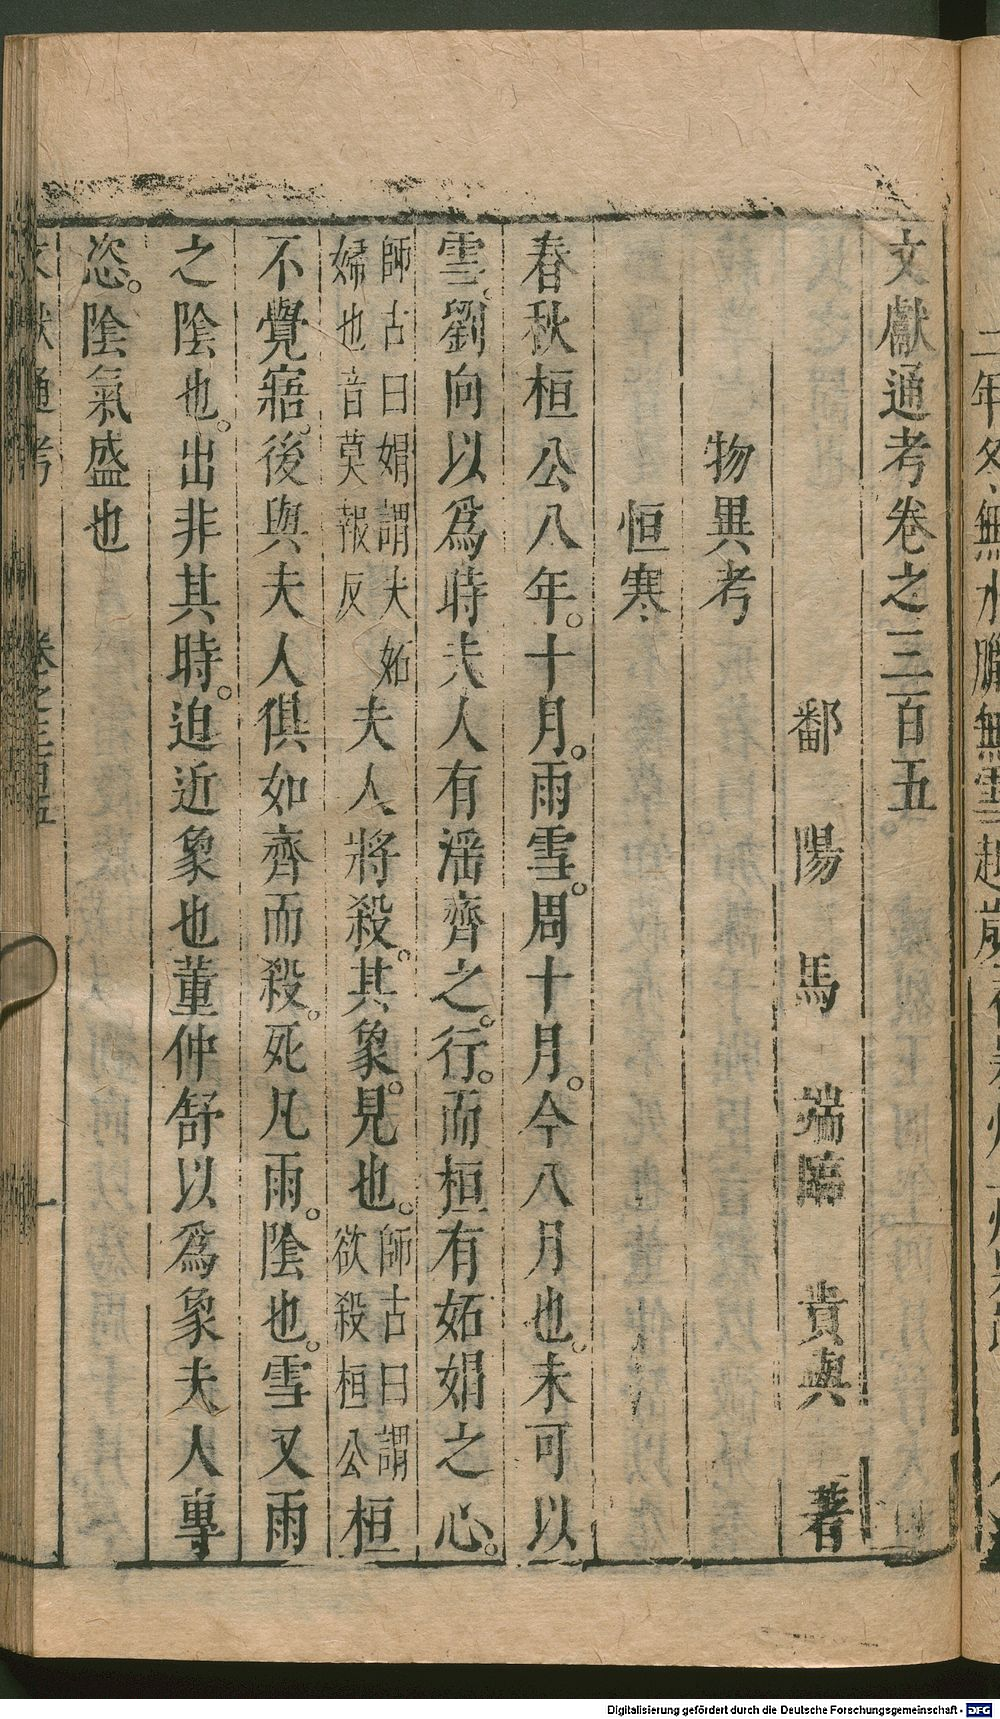 文獻通考卷之三百五
鄱陽馬端臨貴與著
物異考
恒寒
春秋桓公八年。十月。雨雪。周十月。今八月也。未可以
雪。劉向以爲時夫人有淫齊之。行。而桓有妬媢之心。
師古曰媢謂夫妬
婦也音莫報反
夫人將殺。其象。見也。
師古曰謂
欲殺桓公
桓
不覺寤。後與夫人俱如齊而殺。死凡雨。陰也。雪又雨
之陰也。出非其時。迫近象也董仲舒以爲象夫人專
恣。陰氣盛也
文獻通考 卷之三百五 一
二年冬無水臘無雪
Digitalisierung gefördert durch die Deutsche Forschungsgemeinschaft - DFG